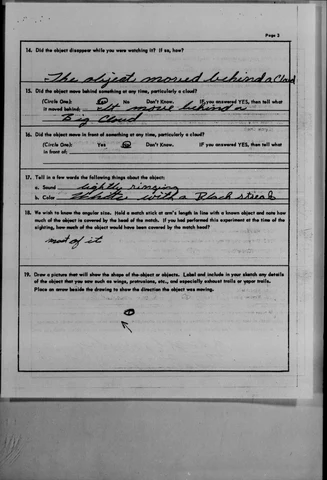 Page 3
14. Did the object disappear while you were watching it? If so, how?
The object moved behind a Cloud
15. Did the object move behind something at any time, particularly a cloud?
(Circle One): Yes No Don't Know. IF you answered YES, then tell what
it moved behind: It move behind a
Big Cloud
16. Did the object move in front of something at any time, particularly a cloud?
(Circle One): Yes No Don't Know. IF you answered YES, then tell what
in front of:
17. Tell in a few words the following things about the object:
a. Sound lightly ringing
b. Color White with a Black streak
18. We wish to know the angular size. Hold a match stick at arm's length in line with a known object and note how
much of the object is covered by the head of the match. If you had performed this experiment at the time of the
sighting, how much of the object would have been covered by the match head?
most of it
19. Draw a picture that will show the shape of the object or objects. Label and include in your sketch any details
of the object that you saw such as wings, protrusions, etc., and especially exhaust trails or vapor trails.
Place an arrow beside the drawing to show the direction the object was moving.